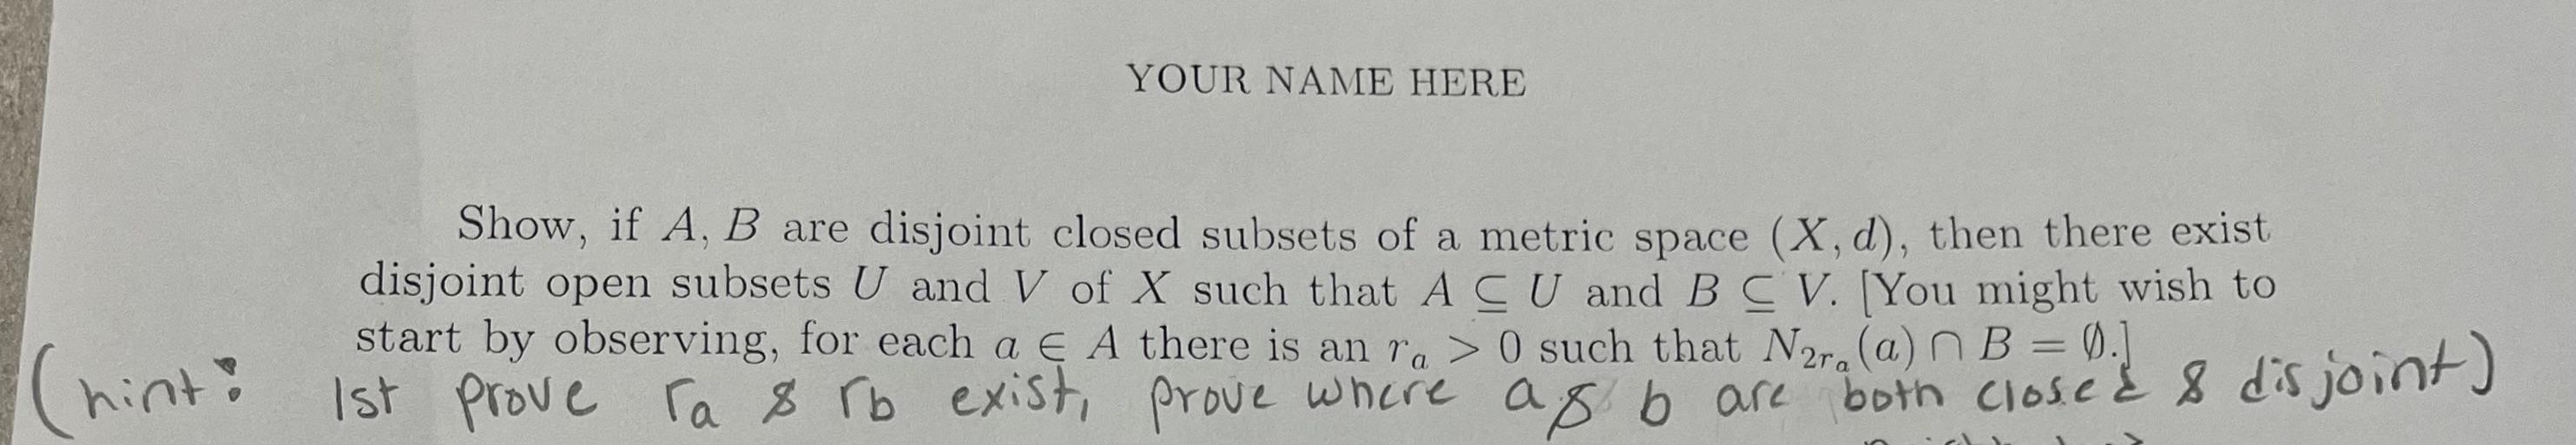 YOUR NAME HERE
Show, if A, B are disjoint closed subsets of a metric space (X, d), then there exist
disjoint open subsets U and V of X such that A ⊆ U and B ⊆ V. [You might wish to
start by observing, for each a ∈ A there is an rₐ > 0 such that N₂ᵣₐ(a) ∩ B = ∅.]
(hint: 1st prove ra & rb exist, prove where a & b are both closed & disjoint)